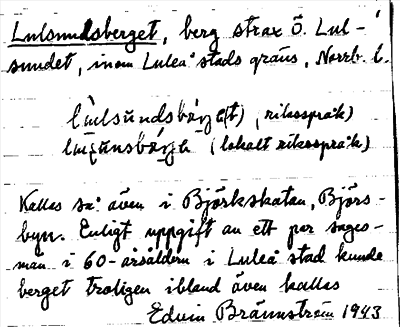 Lulsundsberget, berg strax Ö. Lul-
sundet, inom Luleå stads gräns, Norrb. l.
(riksspråk)
(lokalt riksspråk)
Kallas så även i Björkskatan, Björs-
byn. Enligt uppgift av ett par sages-
män i 60-årsåldern i Luleå stad kunde
berget troligen ibland även kallas
Edvin Brännström 1943